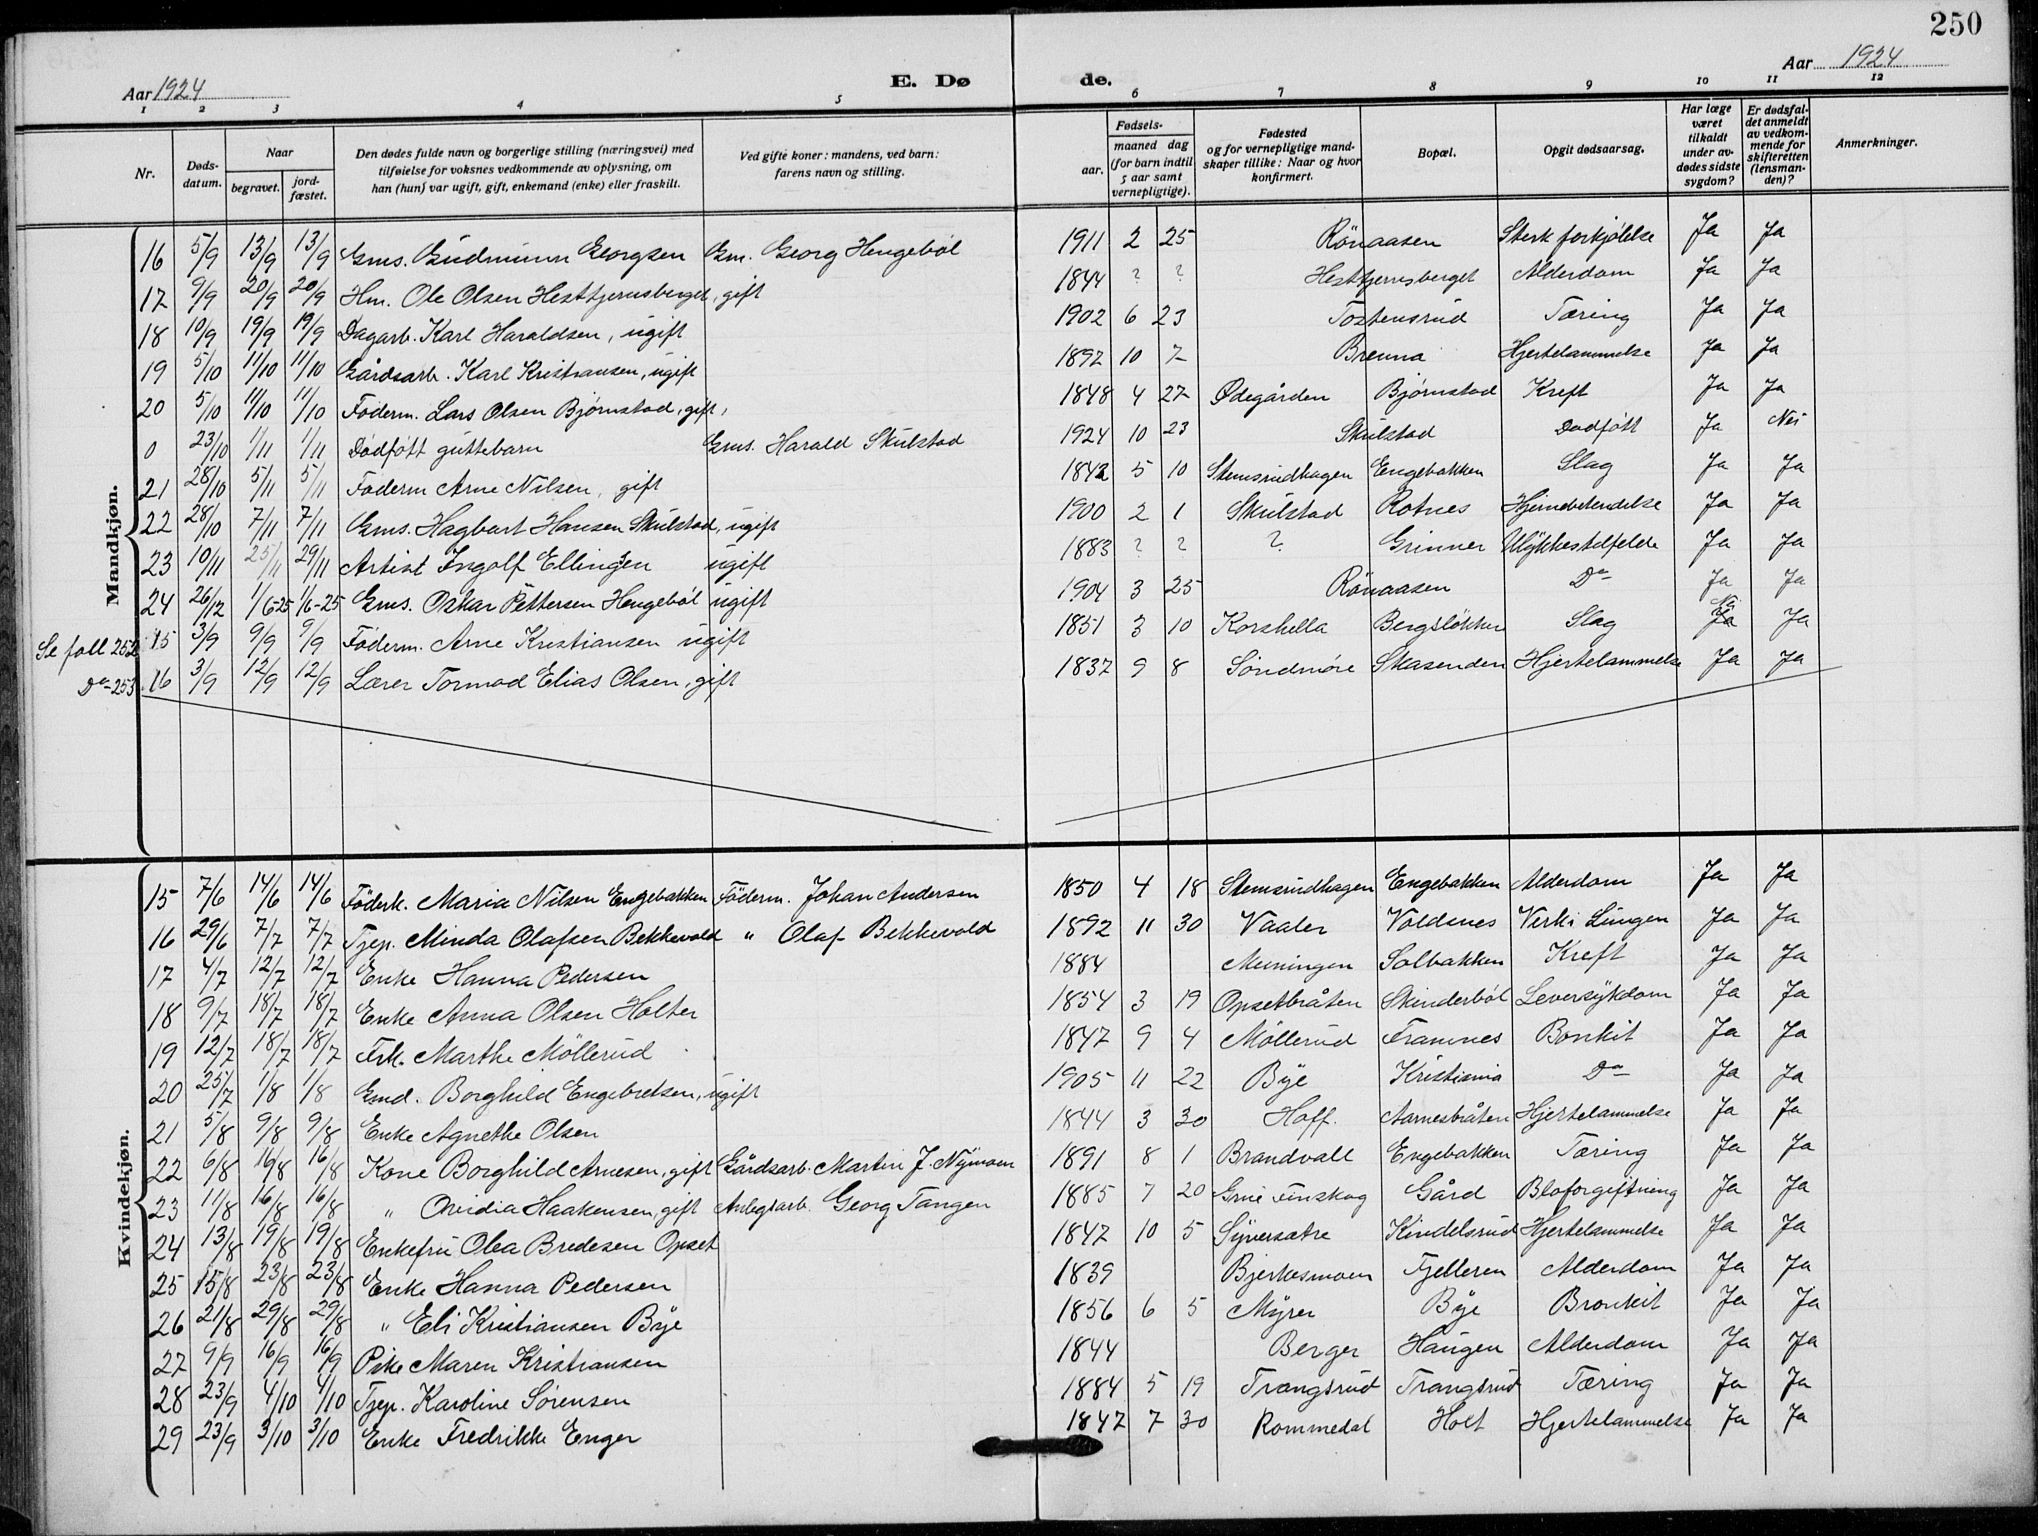 250
Aar 1924
E. Dø
de.
Aar 1924
1 2 3 4 5 6 7 8 9 10 11 12
Nr.
Døds-
datum.
Naar
begravet.
jord-
fæstet.
Den dødes fulde navn og borgerlige stilling (næringsvei) med
tilføielse for voksnes vedkommende av oplysning, om
han (hun) var ugift, gift, enkemand (enke) eller fraskilt.
Ved gifte koner: mandens, ved barn:
farens navn og stilling.
Fødsels-
aar.
maaned dag
(for barn indtil
5 aar samt
vernepligtige).
Fødested
og for vernepligtige mand-
skaper tillike: Naar og hvor
konfirmert.
Bopæl.
Opgit dødsaarsag.
Har læge
været
tilkaldt
under av-
dødes sidste
sygdom?
Er dødsfal-
det anmeldt
av vedkom-
mende for
skifteretten
(lensman-
den)?
Anmerkninger.
Mandkjøn.
16 5/9 13/9 13/9 Gms. Gudmunn Georgsen Gm. Georg Hengebøl 1911 2 25 Rönaasen Sterk forkjølelse Ja Ja
17 9/9 20/9 20/9 Hm. Ole Olsen Hesttjernsberget, gift 1844 ? ? Hesttjernsberget Alderdom Ja Ja
18 10/9 19/9 19/9 Dagarb. Karl Haraldsen, ugift 1902 6 23 Tostensrud Tæring Ja Ja
19 5/10 11/10 11/10 Gårdsarb. Karl Kristiansen, ugift 1892 10 7 Brenna Hjertelammelse Ja Ja
20 5/10 11/10 11/10 Föderm. Lars Olsen Bjørnstad, gift, 1848 4 27 Ødegården Bjørnstad Kreft Ja Ja
0 23/10 1/11 1/11 Dödfött guttebarn Gms. Harald Skulstad 1924 10 23 Skulstad Dødfött Ja Nei
21 28/10 5/11 5/11 Föderm Arne Nilsen, gift 1842 5 10 Stemsrudhagen Engebakken Slag Ja Ja
22 28/10 7/11 7/11 Gms. Hagbart Hansen Skulstad, ugift 1900 2 1 Skulstad Rotnes Hjernebetendelse Ja Ja
23 10/11 25/11 29/11 Artist Ingolf Ellingsen ugift 1883 ? ? ? Grinner Ulykkestilfelde Ja Ja
24 26/12 1/6-25 1/6-25 Gms. Oskar Pettersen Hengebøl ugift 1904 3 25 Rönaasen Do Ja Ja
Se foll 252 15 3/9 9/9 9/9 Föderm. Arne Kristiansen ugift 1851 3 10 Korshella Bergsløkken Slag Nei Ja Ja
Do 253 16 3/9 12/9 12/9 Lærer Tormod Elias Olsen, gift 1837 9 8 Söndmöre Skasenden Hjertelammelse Ja Ja
Kvindekjøn.
15 7/6 14/6 14/6 Föderk. Maria Nilsen Engebakken Föderm. Johan Andersen 1850 4 18 Stemsrudhagen Engebakken Alderdom Ja Ja
16 29/6 7/7 7/7 Tjep. Minda Olafsen Bekkevold " Olaf Bekkevold 1892 11 30 Vaaler Voldsnes Verk i Lungen Ja Ja
17 4/7 12/7 12/7 Enke Hanna Pedersen 1884 Meiningen Solbakken Kreft Ja Ja
18 9/7 18/7 18/7 Enke Anna Olsen Holter 1854 3 19 Opsetbråten Skinderböl Leversykdom Ja Ja
19 12/7 18/7 18/7 Frk. Marthe Möllerud 1847 9 4 Möllerud Framnes Bonkit Ja Ja
20 25/7 1/8 1/8 Gmd. Borghild Engebretsen, ugift 1905 11 22 Bye Kristiania Do Ja Ja
21 5/8 9/8 9/8 Enke Agnethe Olsen 1844 3 30 Hoff. Aarnesbråten Hjertelammelse Ja Ja
22 6/8 16/8 16/8 Kone Borghild Arnesen, gift Gårdsarb. Martin J. Nymoen 1891 8 1 Brandvall Engebakken Tæring Ja Ja
23 11/8 16/8 16/8 " Ovidia Haakensen, gift Anlegsarb. Georg Tangen 1885 7 20 Grue Finskog Gård Bloforgiftning Ja Ja
24 13/8 19/8 19/8 Enkefru Olea Bredesen Opset 1847 10 5 Syversætre Kindelsrud Hjertelammelse Ja Ja
25 15/8 23/8 23/8 Enke Hanna Pedersen 1839 Bjerkesmoen Fjelleren Alderdom Ja Ja
26 21/8 29/8 29/8 " Eli Kristiansen Bye 1856 6 5 Myrer Bye Bronkit Ja Ja
27 9/9 16/9 16/9 Pike Maren Kristiansen 1844 Berger Haugen Alderdom Ja Ja
28 23/9 4/10 4/10 Tjep. Karoline Sørensen 1884 5 19 Trangsrud Trangsrud Tæring Ja Ja
29 23/9 3/10 3/10 Enke Fredrikke Enger 1847 7 30 Rommedal Holt Hjertelammelse Ja Ja